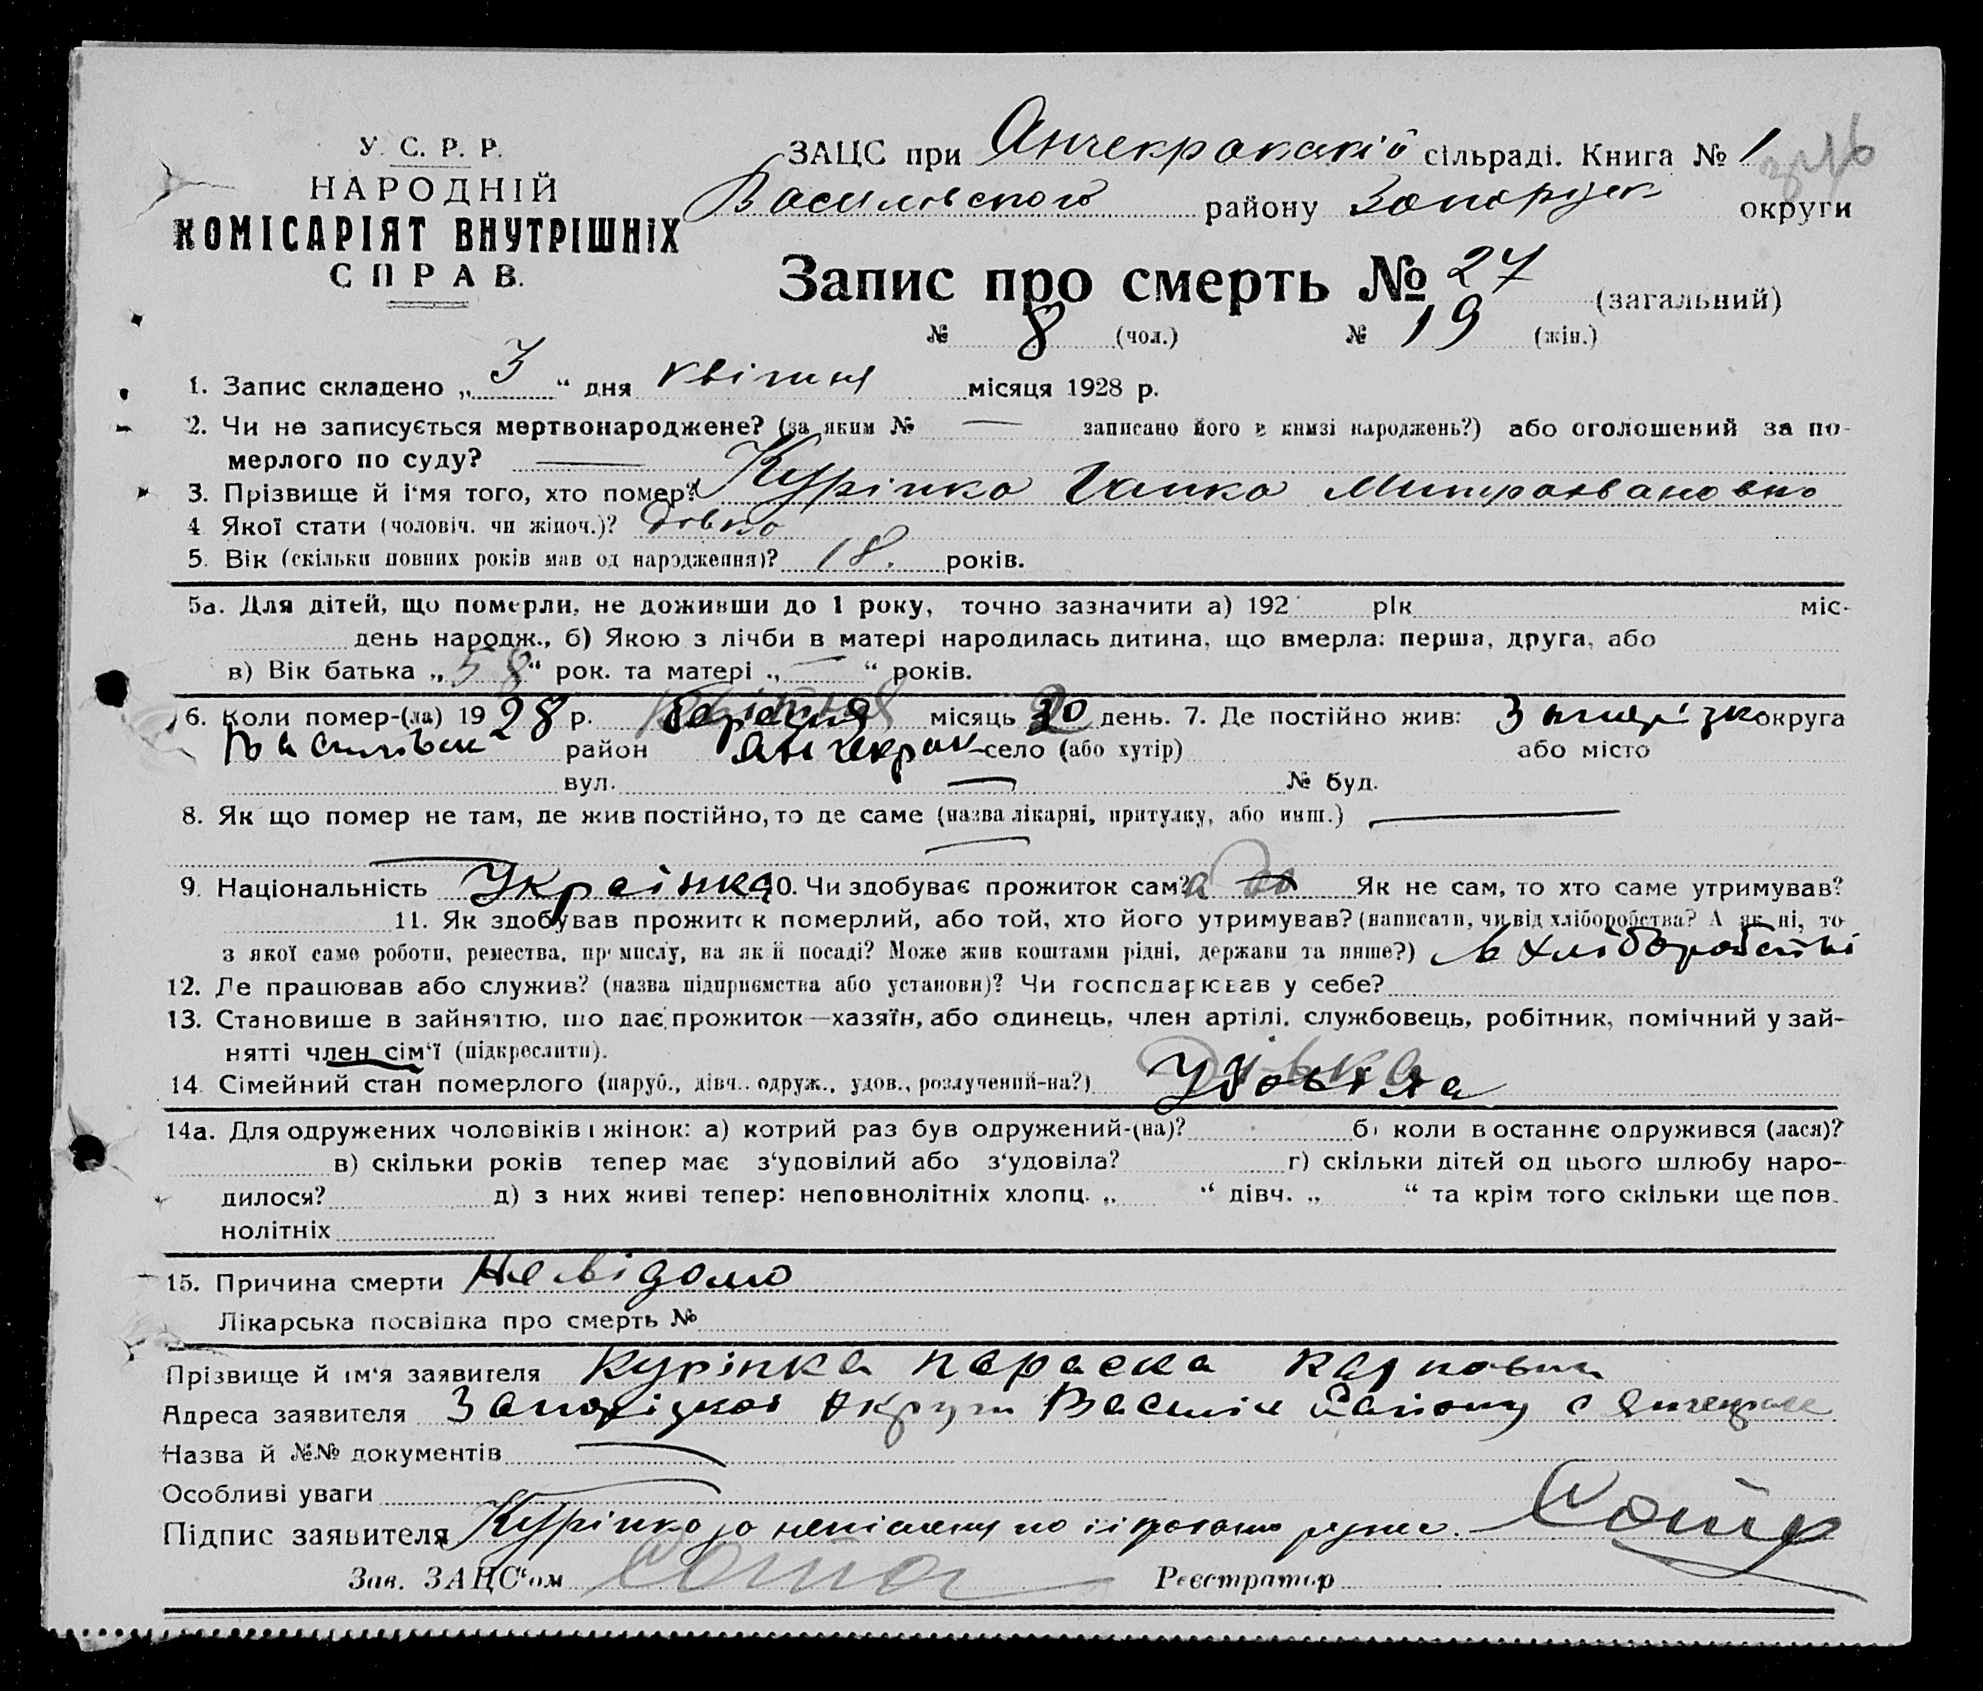 У. С. Р. Р.
НАРОДНІЙ
КОМІСАРІЯТ ВНУТРІШНІХ
СПРАВ.
ЗАЦС при Анчекракській сільраді. Книга № 1
Василівського району Запоріжск округи
Запис про смерть № 27 (загальний)
№ 8 (чол.) № 19 (жін.)
1. Запис складено „ 3 “ дня квітня місяця 1928 р.
2. Чи не записується мертвонароджене? (за яким № — записано його в книзі народжень?) або оголошений за по-
мерлого по суду? —
3. Прізвище й і'мя того, хто помер? Курінко Ганка Митрохвановна
4 Якої стати (чоловіч. чи жіноч.)?
5. Вік (скільки повних років мав од народження)? 18. років.
5а. Для дітей, що померли, не доживши до 1 року, точно зазначити а) 192 рік міс-
день народж., б) Якою з лічби в матері народилась дитина, що вмерла: перша, друга, або
в) Вік батька „ 58 “ рок. та матері „ — “ років.
6. Коли помер-(ла) 1928 р. березня місяць 30 день. 7. Де постійно жив: Запоріжк округа
Василівськ район Анчекрак село (або хутір) або місто
вул. — № буд.
8. Як що помер не там, де жив постійно, то де саме (назва лікарні, притулку, або инш.) —
9. Національність Українка 10. Чи здобуває прожиток сам? Як не сам, то хто саме утримував?
11. Як здобував прожиток померлий, або той, хто його утримував? (написати, чи від хліборобства? А як ні, то
з якої само роботи, ремества, промислу, на якій посаді? Може жив коштами рідні, держави та инше?) в хліборобстві
12. Де працював або служив? (назва підприємства або установи)? Чи господарював у себе?
13. Становище в зайняттю, що дає прожиток—хазяїн, або одинець, член артілі, службовець, робітник, помічний у зай-
нятті член сім'ї (підкреслити).
14. Сімейний стан померлого (паруб., дівч., одруж., удов., розлучений-на?) Дівка
14а. Для одружених чоловіків і жінок: а) котрий раз був одружений-(на)? б) коли востаннє одружився (лася)?
в) скільки років тепер має з'удовілий або з'удовіла? г) скільки дітей од цього шлюбу наро-
дилося? д) з них живі тепер: неповнолітніх хлопц. „ “ дівч. „ “ та крім того скільки ще пов.
нолітніх
15. Причина смерти Невідомо
Лікарська посвідка про смерть №
Прізвище й ім'я заявителя Курінка Параска Карповна
Адреса заявителя Запоріжкої Округи Василів Району с Анчекрак
Назва й №№ документів —
Особливі уваги
Підпис заявителя Курінко за неписьмену по її проханю
Зав. ЗАЦС'ом Реєстратор